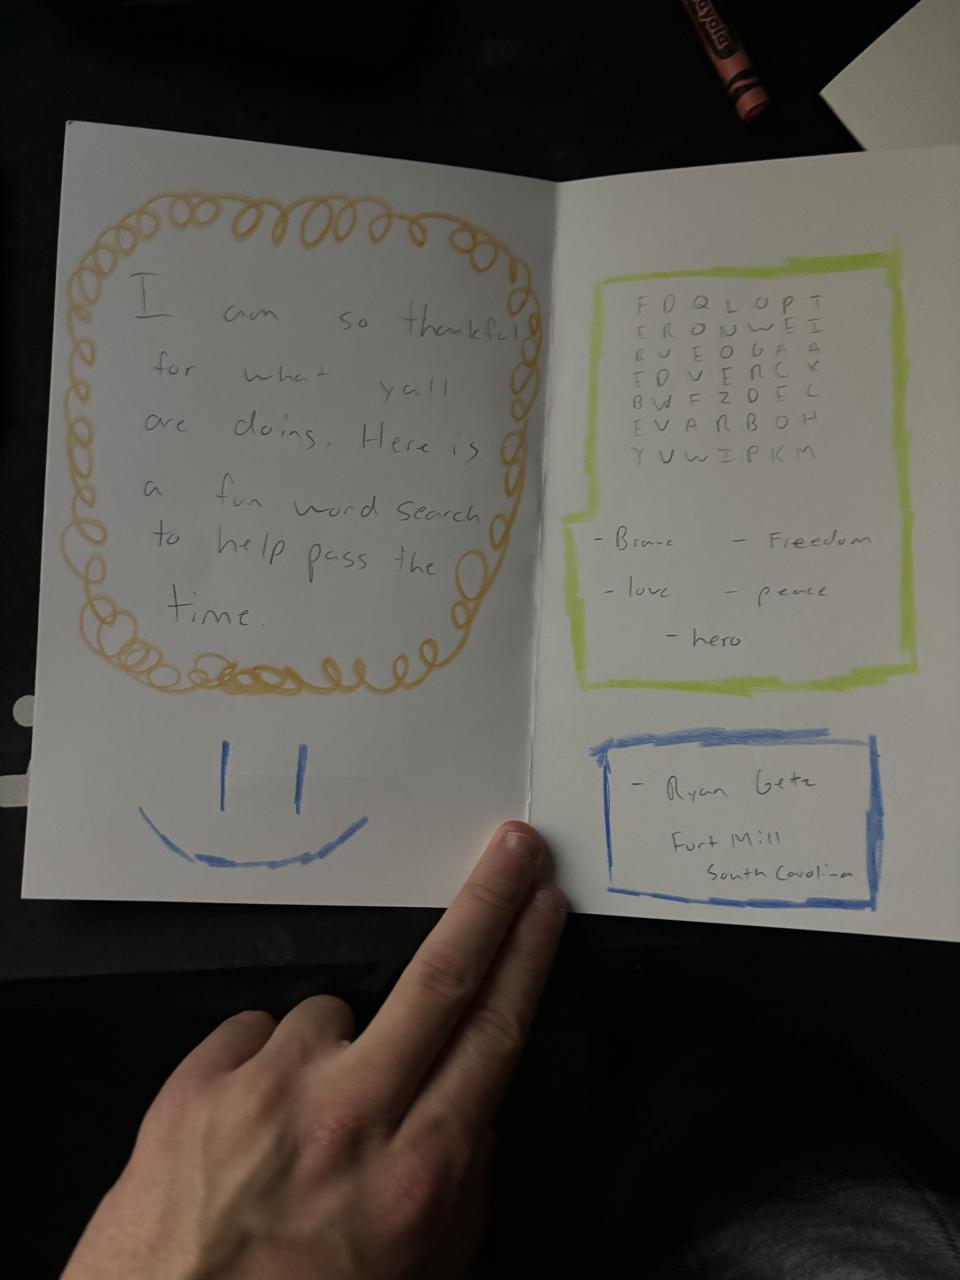 I am so thankful
for what yall
are doing. Here is
a fun word search
to help pass the
time.
F D Q L O P T
E R O N W E I
R V E O G A A
E D V E R C X
B W F Z D E L
E V A R B O H
Y U W I P K M
- Brave - Freedom
- love - peace
- hero
- Ryan Getz
Fort Mill
South Carolina